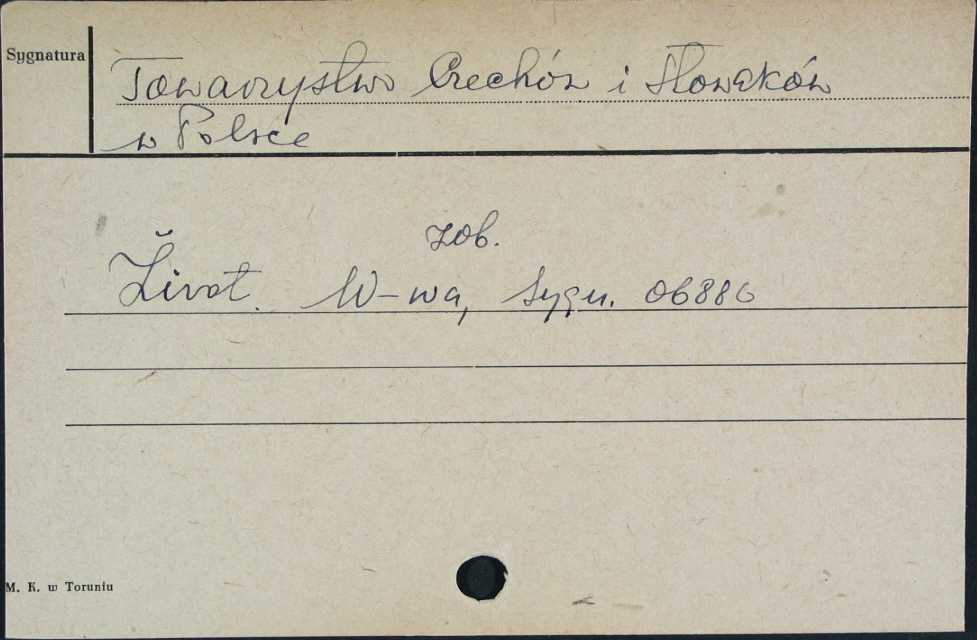 Sygnatura
Towarzystwo Czechów i Słowaków
w Polsce
zob.
Život. W-wa, Sygn. 06886
M. K. w Toruniu